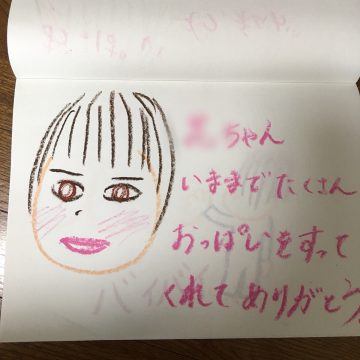 ちゃん
いままでたくさん
おっぱいをすって
くれてありがとう